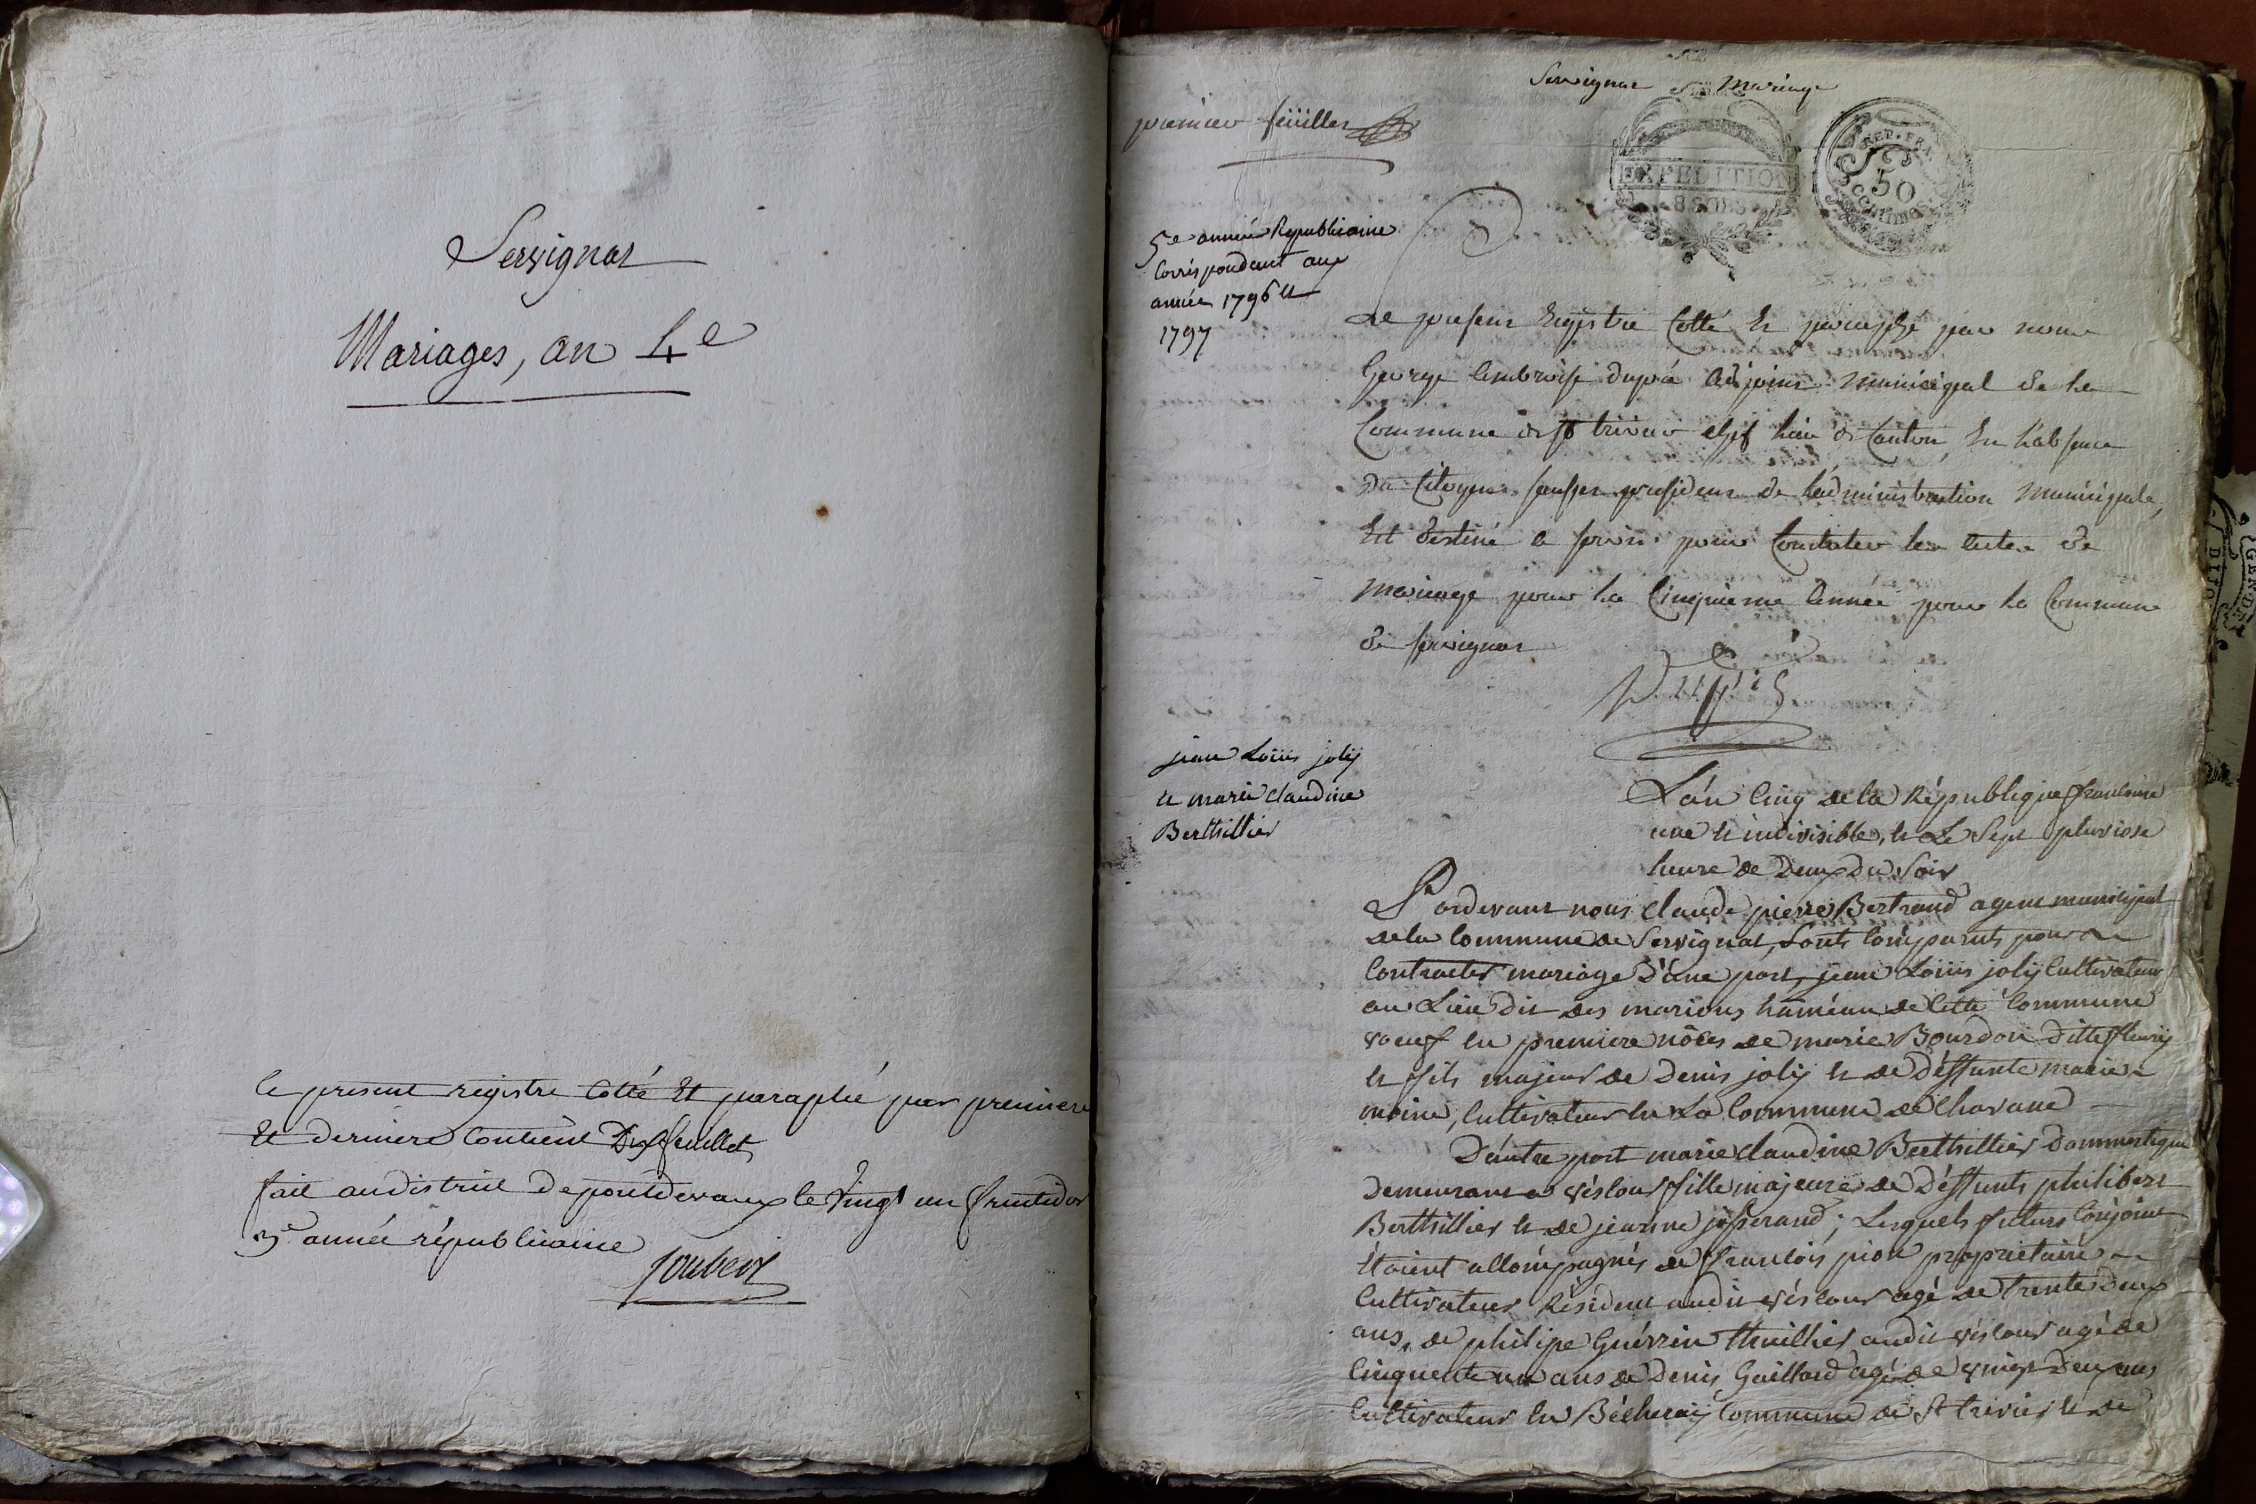 Servignat
Mariages, an 4e
Ce present registre Cotté Et paraphé par premiere
Et derniere Contient Dix feuillets
fait au district de pontdevaux le vingt un fructidor
3e année républicaine
Joubert
Servignat Mariage
premier feüillet
EXPEDITION
REP. FRA.
50
CENTIMES
5e année Republicaine
Corréspondant aux
année 1796 et
1797
Le present Registre Cotté Et paraphé par nous
George Ambroise dupré Adjoint Municipal de la
Commune de St trivier chef lieu de Canton, En l'absence
du Citoyen president de l'administration Municipale,
Est destiné a servir pour Constater les actes de
Mariage pour la Cinquieme année pour la Commune
de servignat
jean Loüis jolÿ
et marie Claudine
Berthillier
L'an Cinq de la République francoise
une et indivisible, et Le Sept pluviose
heure de Deux Du Soir
Pardevant nous Claude pierre Bertrand agent municipal
de la Commune de Servignat, Sonts Comparuts pour
Contracter mariage D'une part, jean Loüis jolÿ Cultivateur
au Lieu dit des marions hameau de Cette Commune
voeuf en premiere nôces de marie Bourdon Ditte fleurÿ
et fils majeur de Denis jolÿ et de Déffunte marie
moine, Cultivateur en La Commune de Chavane
D'autre part marie Claudine Berthillier Dommestique
Demeurant a véscour fille majeure de Déffunts philibert
Berthillier et de jeanne josserand; Lesquels futurs Conjoints
étoient accompagnés de francois pion propriétaire
Cultivateur Résident audit véscour agé de trente deux
ans, de philipe Guérrin thuillier audit véscour agé de
Cinquente un ans de Denis Gaillard agé de vingt Deux ans
Cultivateur en Bécheraÿ Commune de St trivier et de